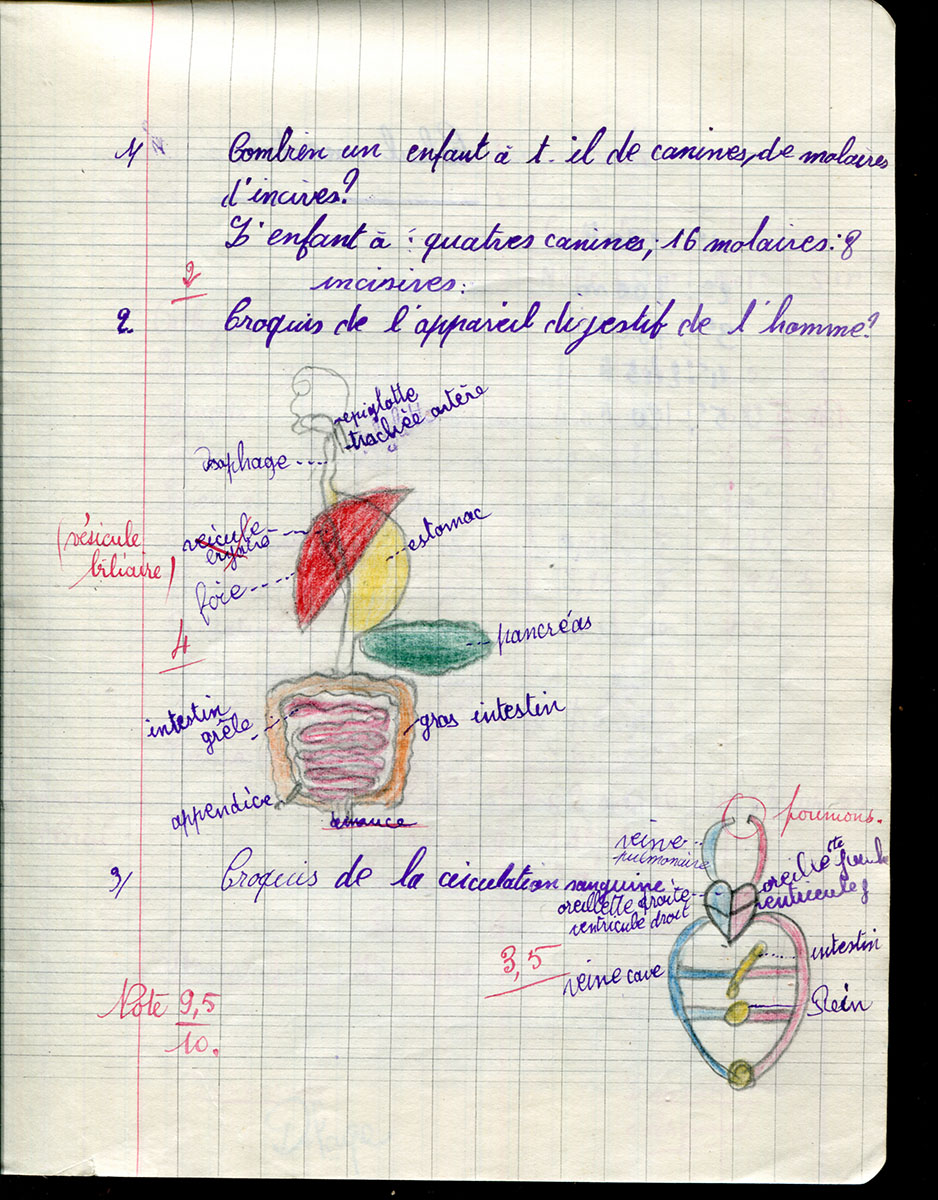 1/ Combien un enfant à t-il de canines, de molaires
d'incives?
L'enfant à : quatres canines, 16 molaires: 8
incisives:
2
2. Croquis de l'appareil digestif de l'homme?
epiglotte
trachée artère
œsophage
estomac
(vésicule
biliaire)
foie
4
pancréas
intestin
grêle
gros intestin
appendice
3/ Croquis de la circulation sanguine:
poumons.
veine
pulmonaire
oreillette droite
ventricule droit
3,5
veine cave
intestin
Rein
Note 9,5
10.